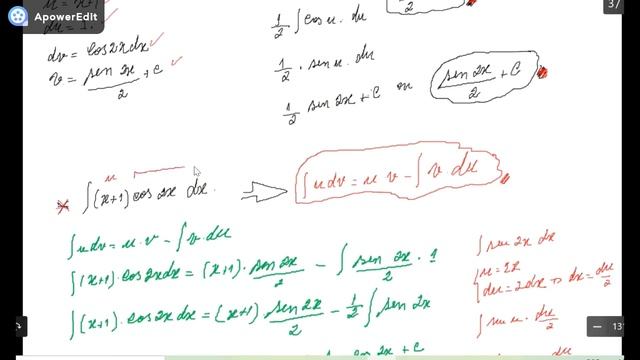 ApowerEdit
3/
u = x+1
du = 1.
dv = cos2xdx
v = sen 2x/2 + c
1/2 ∫ cos u. du
1/2 . sen u. du
1/2 sen 2x + c ou sen 2x/2 + C
u
∫(x+1) cos 2x dx.
∫u dv = u v - ∫ v du
∫u dv = u . v - ∫ v . du
∫(x+1) . cos2xdx = (x+1) . sen 2x/2 - ∫ sen 2x/2 . 1
∫(x+1) . cos 2x dx = (x+1) sen 2x/2 - 1/2 ∫ sen 2x
∫ sen 2x dx
u = 2x
du = 2dx => dx = du/2
∫ sen u . du/2
13